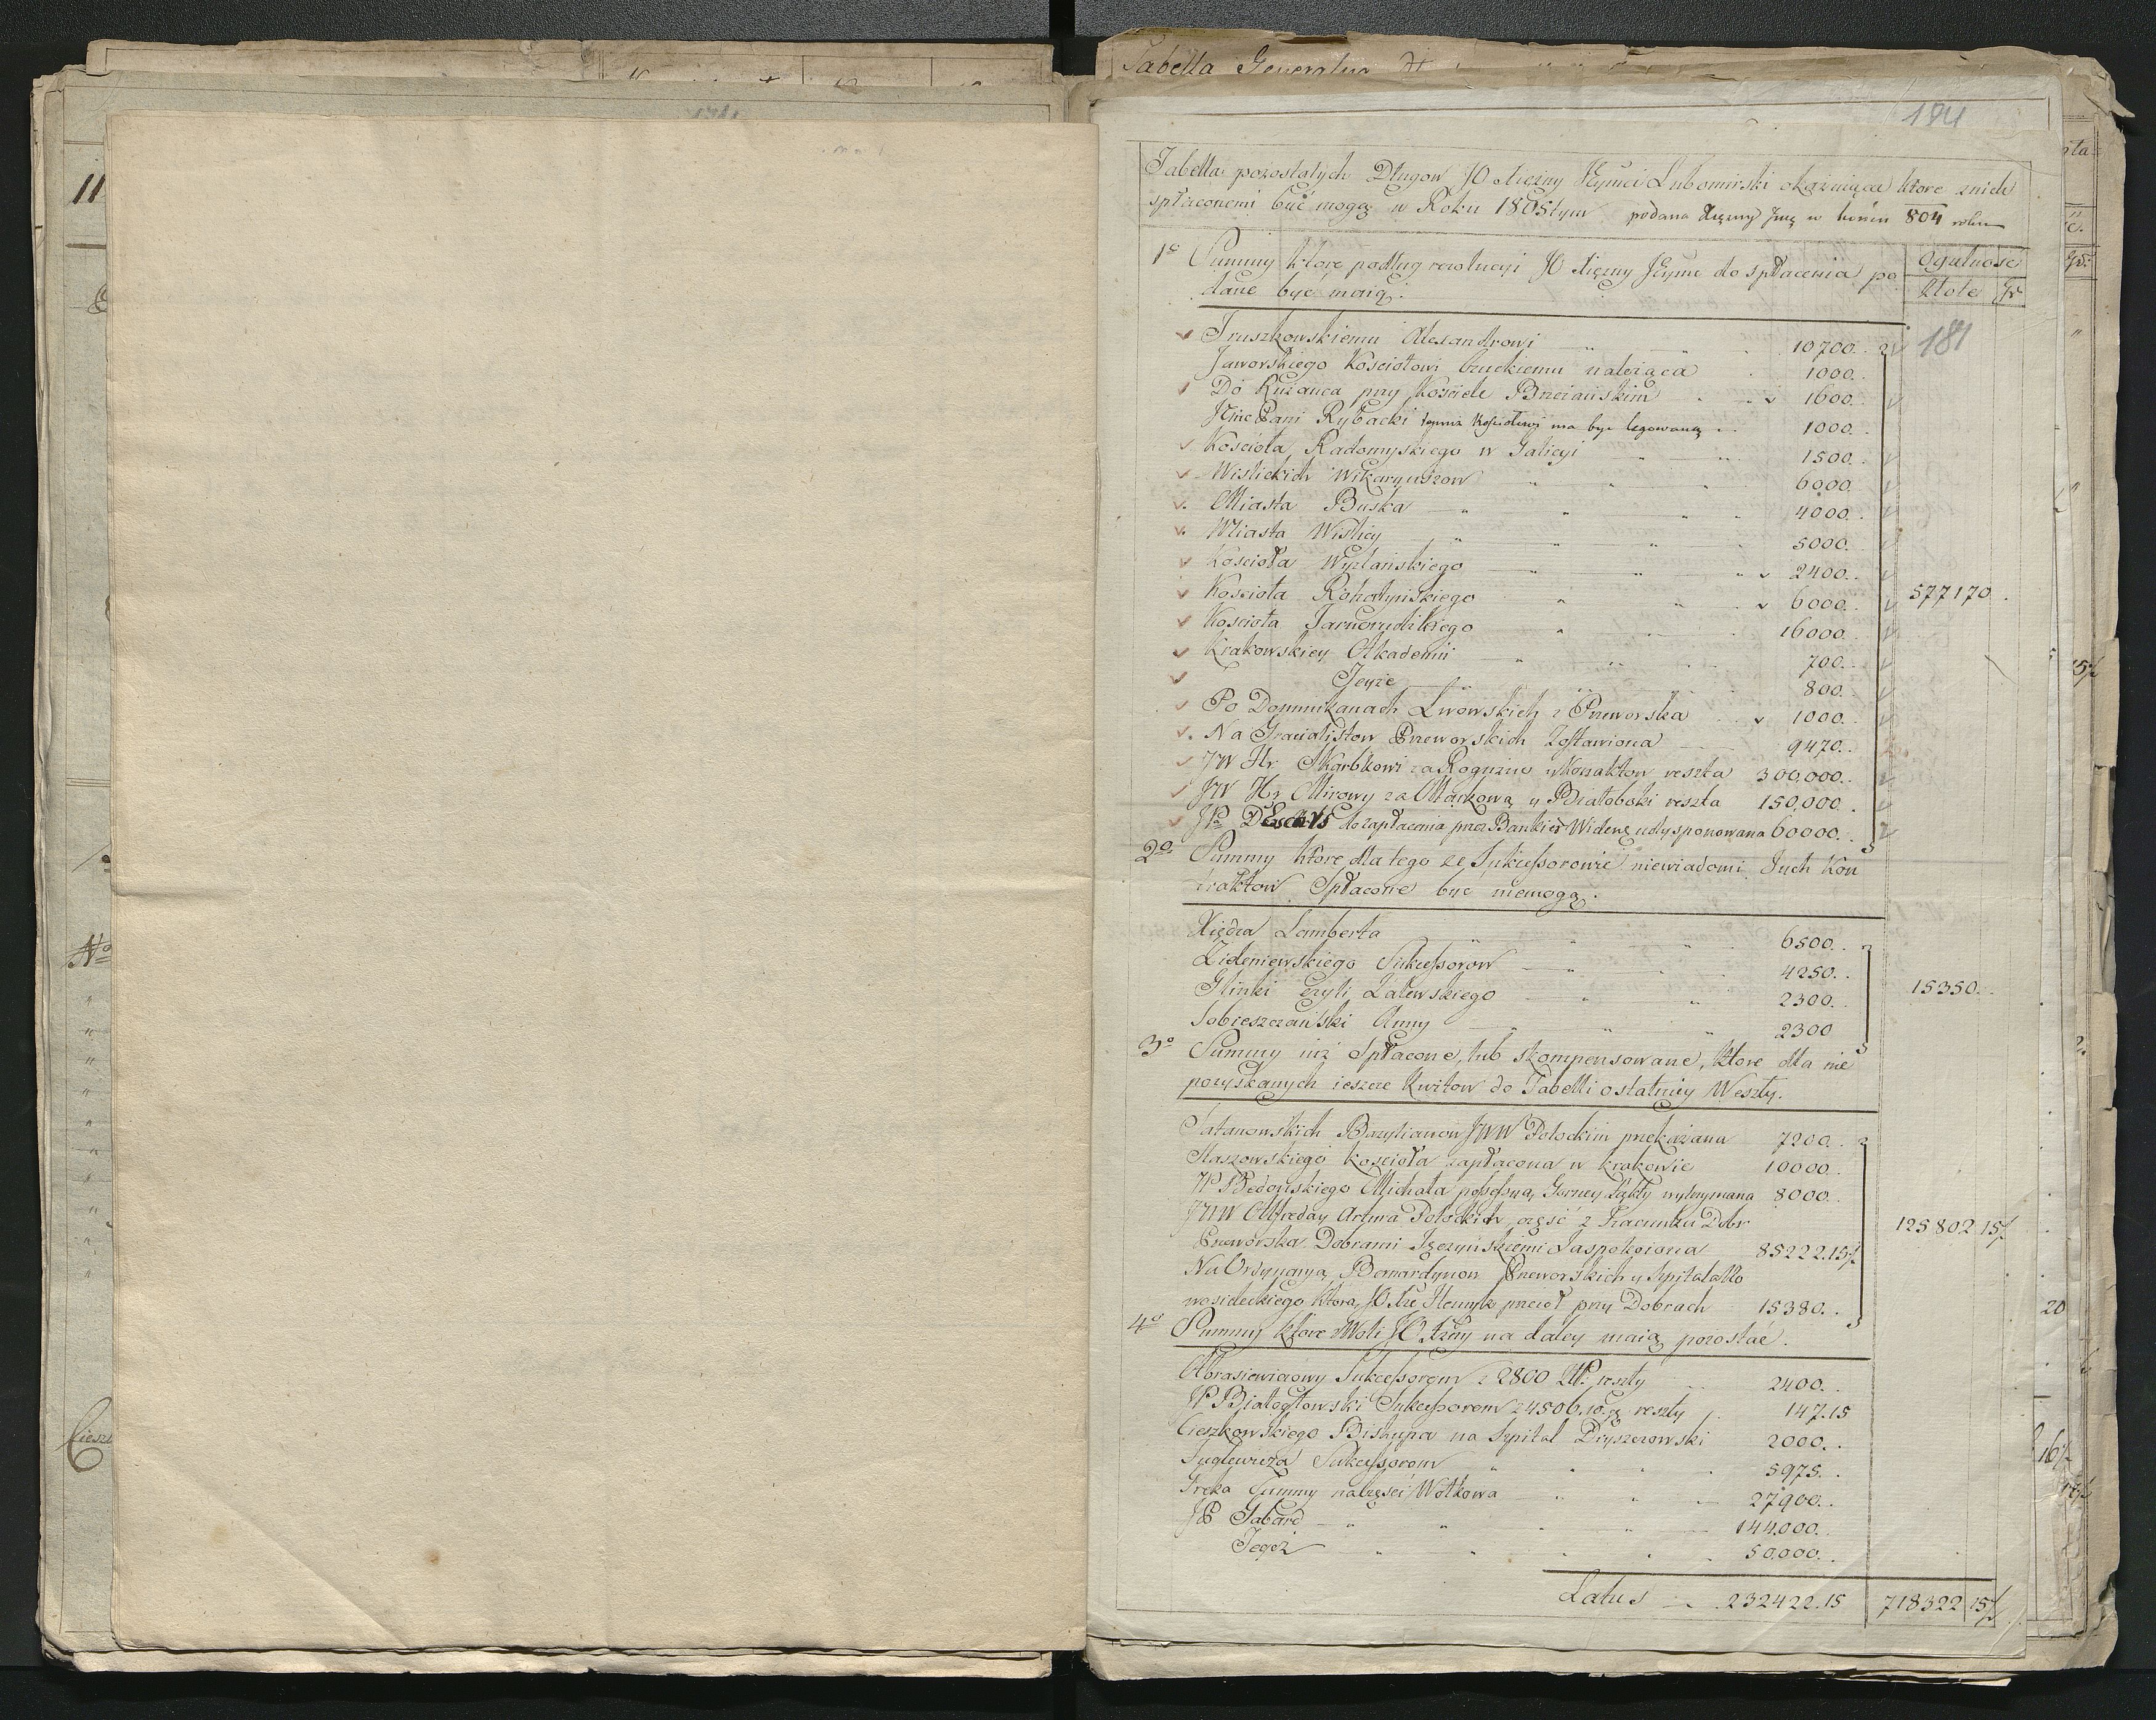 Tabella Generalna
184
Tabella pozostałych Długow JO Xiężny JEymci Lubomirski okazuiąca które znich
spłaconemi być mogą w Roku 1805tym podana Xiężny Jmę w końcu 804 roku
1o Summy które podług rezolucyi JO Xiężny JEyme do spłacenia po
dane być maią.
Ogulność
Złote Gr
181
Truszkowskiemu Alexandrowi 10700.
Jaworskiego Kosciołowi bruckiemu należąca 1000.
Do Różańca przy Kościele Brzezianskim 1600.
JmcPani Rybacki temuż Kościołowi ma być legowaną 1000.
Kościoła Radomyskiego w Galicyi 1500.
Wislickich Wikaryuszow 6000.
Miasta Buska 4000.
Miasta Wislicy 5000.
Kościoła Wyzlańskiego 2400.
Kosciola Rohatyńskiego 6000. 577170.
Kosciola 16000.
Krakowskiey Akademii 700.
Teyże 800.
Po Dominikanach Lwowskich z Przeworska 1000.
Na Gracialistow Przeworskich Zostawiona 9470.
JW Hr Skarbkowi za Rogużno z Kontraktow reszta 300,000.
JW Hr Mirowy za Markową y Białoboki reszta 150,000.
do zapłacenia przez Bankier Widenę udysponowana 60000.
2o Summy które dla tego ze Sukcessorowie niewiadomi Inch Kon
traktow Spłacone być niemogą.
Xiędza Lamberta 6500.
Zideniewskiego Sukcessorow 4250.
Glinki czyli Zalewskiego 2300. 15350.
Sobieszczański Anny 2300
3o Summy iuż Spłacone, lub skompensowane, które dla nie
pozyskanych ieszcze Kwitow do Tabelli ostatniey Weszły.
Satanowskich Bazylianow JWW Potockim przekazana 7200.
Staszowskiego kościoła zapłacona w krakowie 10000.
Michała possessyą Gorney wytrzymana 8000.
JWW Alfreday Artura Potockich część z Szacunku Dobr
Przeworska Dobrami Łęczyńskiemi Zaspokoiona 85222.15½ 125802 15½
Na Ordynaryą Bernardynow Przeworskich y Szpitala
wosieleckiego która JO Xże Henryk przeioł przy Dobrach 15380.
4o Summy które z Woli JO Xżny na daley maią pozostać.
Abrasiewiczowy Sukcessorom z 2800 Złt. reszty 2400.
JP Białogłowski Sukcessorom z 4506.10.gr reszty 147.15
Cieszkowskiego Biskupa na Szpital 2000.
Sukcessorom 5975.
Treka Summy naleześci Wołkowa 27900.
JP Gabard 144,000.
Tegoż 50,000.
Latus 232422.15 718322 15½